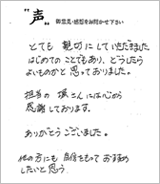 "声" 御意見・感想をお聞かせ下さい
とても 親切にしていただきました
はじめての こともあり、どうしたら
よいものかと 思っておりました。
担当の 様には心から
感謝しております。
ありがとうございました。
他の方にも 自信をもって おすすめ
したいと思う